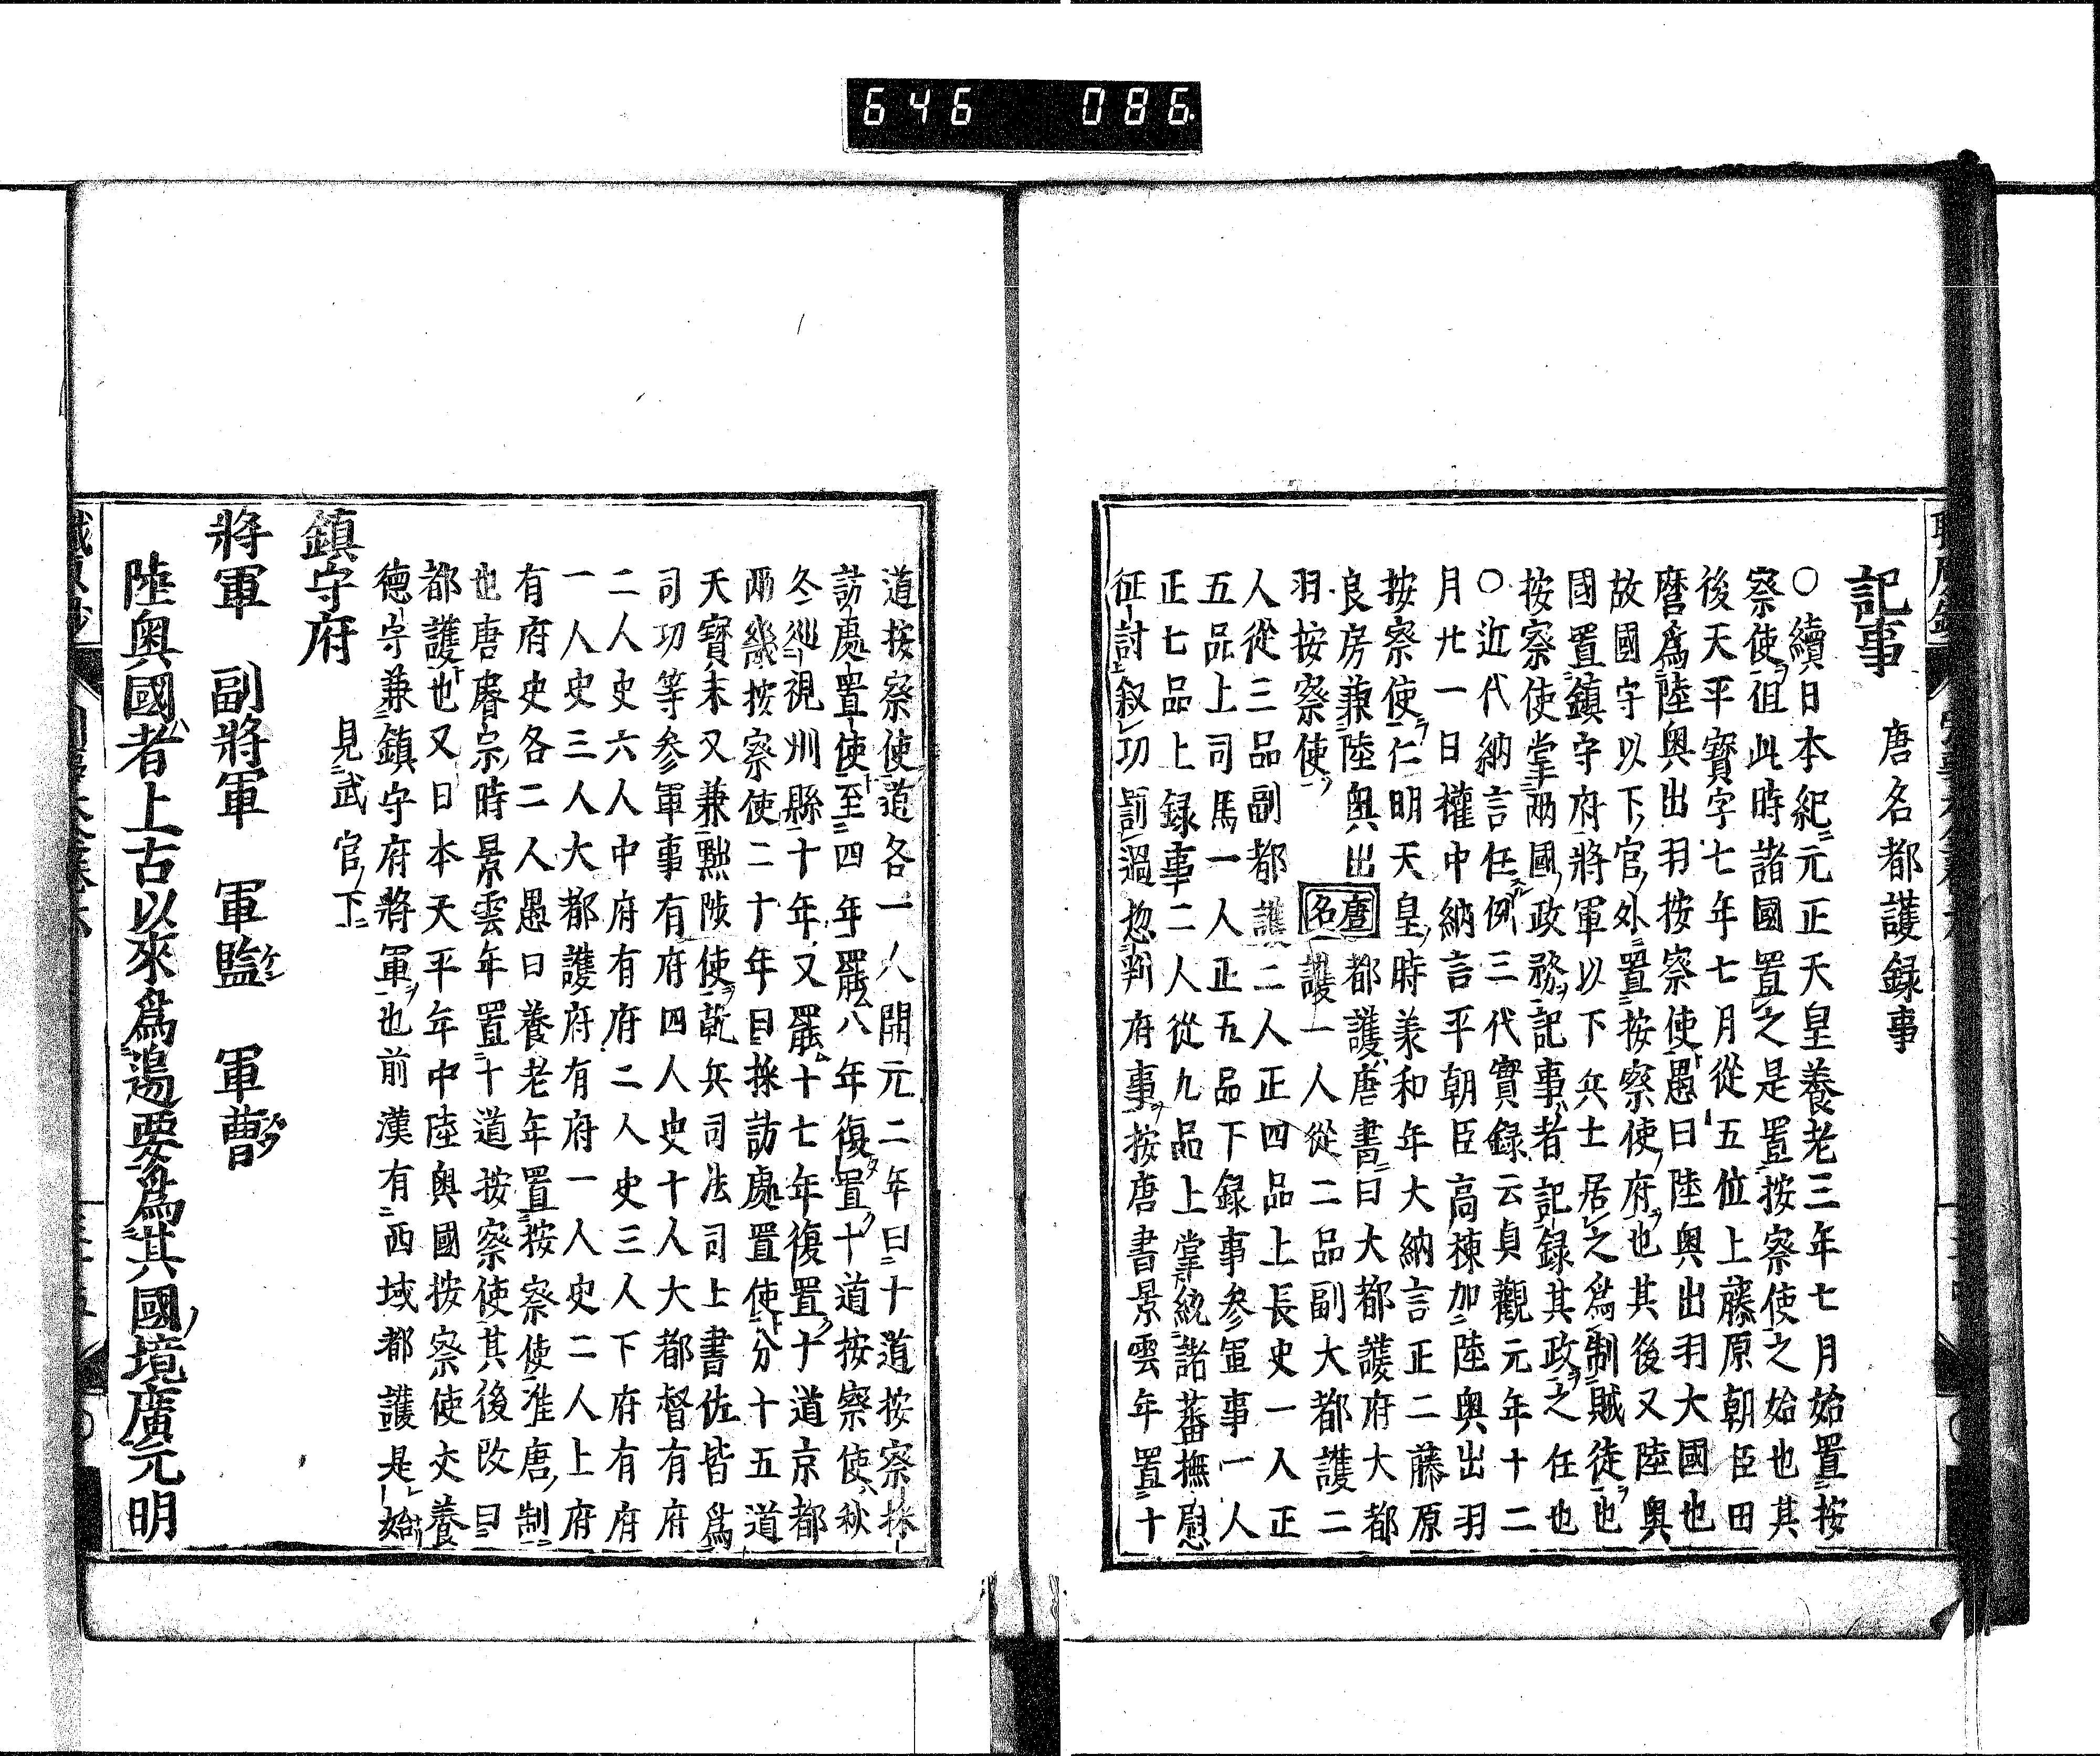 646 086.
記事 唐名都護録事
○續日本紀元正天皇養老三年七月始置按
察使徂此時諸國置之是置按察使之始也其
後天平寳字七年七月從五位上藤原朝臣田
麿爲陸奥出羽按察使愚曰陸奥出羽大國也
故國守以下官外置按察使府也其後又陸奥
國置鎮守府將軍以下兵士居之爲制賊徒也
按察使掌兩國政務記事者記録其政之任也
○近代納言任例三代實録云貞觀元年十二
月廿一日權中納言平朝臣高棟加陸奥出羽
按察使仁明天皇時羕和年大納言正二藤原
良房兼陸奥出
羽按察使
唐名
都護唐書曰大都護府大都
護一人從二品副大都護二
人從三品副都護二人正四品上長史一人正
五品上司馬一人正五品下録事参軍事一人
正七品上録事二人從九品上掌統諸蕃撫慰
征討叙功罰過惣判府事按唐書景雲年置十
道按察使道各一人開元二年曰十道按察採
訪處置使至四年罷八年復置十道按察使秋
冬巡視州縣十年又罷十七年復置十道京都
兩畿按察使二十年曰採訪處置使分十五道
天寳末又兼黜陟使乾兵司法司上書佐皆爲
司功等参軍事有府四人史十人大都督有府
二人史六人中府有府二人史三人下府有府
一人史三人大都護府有府一人史二人上府
有府史各二人愚曰養老年置按察使准唐制
也唐睿宗時景雲年置十道按察使其後改曰
都護也又日本天平年中陸奥國按察使交養
德守兼鎮守府將軍也前漢有西域都護是始
鎮守府 見武官下
將軍 副將軍 軍監 軍曹
陸奥國者上古以來爲邊要爲其國境廣元明